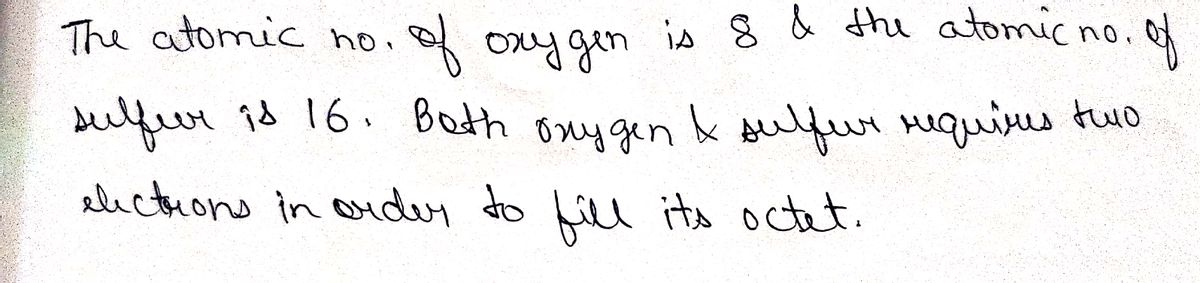 The atomic no. of oxygen is 8 & the atomic no. of
sulfur is 16. Both oxygen & sulfur requires two
electrons in order to fill its octet.